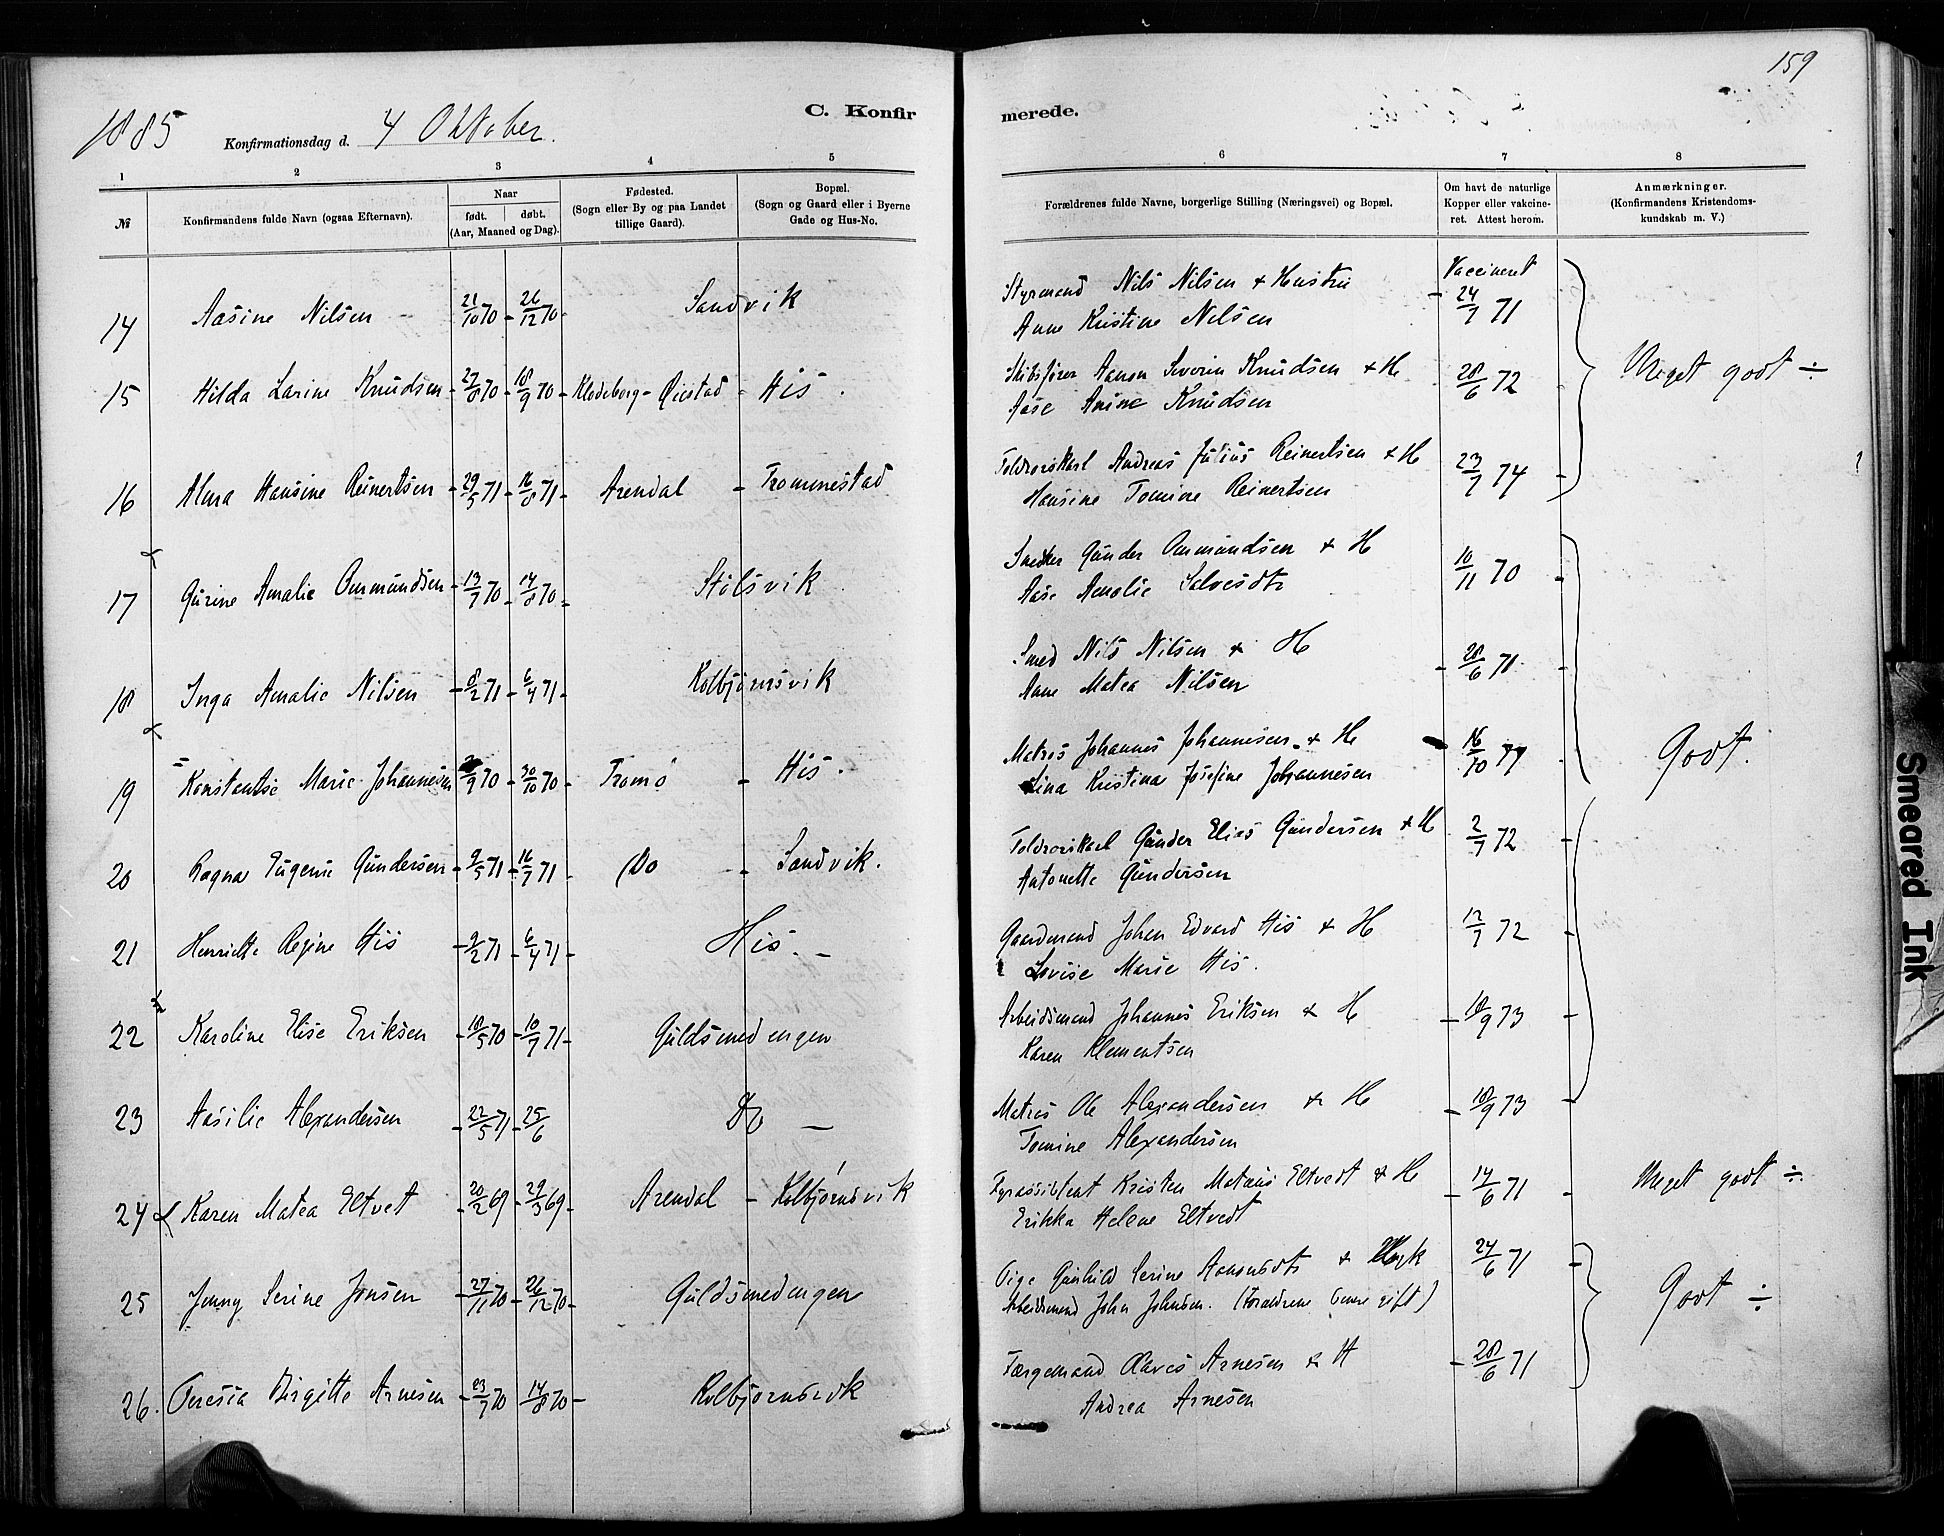 159
1885
C. Konfirmerede.
Konfirmationsdag d. 4 Oktober.
1 2 3 4 5 6 7 8
№
Konfirmandens fulde Navn (ogsaa Efternavn).
Naar
født. døbt.
(Aar, Maaned og Dag).
Fødested.
(Sogn eller By og paa Landet
tillige Gaard).
Bopæl.
(Sogn og Gaard eller i Byerne
Gade og Hus-No.
Forældrenes fulde Navne, borgerlige Stilling (Næringsvei) og Bopæl.
Om havt de naturlige
Kopper eller vakcine-
ret. Attest herom.
Anmærkninger.
(Konfirmandens Kristendoms-
kundskab m. V.)
14 Aasine Nilsen 21/10 70 - 26/12 70 Sandvik Styrmand Nils Nilsen & Hustru Vaccineret
Anne Kristine Nilsen 24/7 71
15 Hilda Larine Knudsen 27/8 70 18/9 70 Klodeborg - Øiestad - His. Skibsfører Aanon Severin Knudsen & H 28/6 72 Meget godt ÷
Aase Anine Knudsen
16 Alma Hansine Reinertsen 29/5 71 - 16/8 71 - Arendal - Trommestad Toldroerskarl Andreas Julius Reinertsen & H 23/7 74
Hansine Tomine Reinertsen
17 Gurine Amalie Ommundsen 13/7 70 - 14/8 70 Stølsvik Snedker Gunder Ommundsen & H 10/11 70
Aase Amalie Salvesdtr
18 Inga Amalie Nilsen 8/2 71 - 6/4 71 - Kolbjørnsvik Smed Nils Nilsen & H 28/6 71
Anne Matea Nilsen
19 Konstantse Marie Johannesen /9 70 - 30/10 70 - Tromø - His. Matros Johannes Johannesen & H 16/10 77 Godt.
Lina Kristina Josefine Johannesen
20 Ragna Eugenie Gundersen 9/5 71 - 16/7 71 - Do - Sandvik. Toldroerskarl Gunder Elias Gundersen & H 2/7 72
Antonette Gundersen
21 Henriette Regine His 9/2 71 - 6/4 71 - His. - Gaardmand Johan Edvard His & H 12/7 72
Lovise Marie His.
22 Karoline Elise Eriksen 18/5 70 - 10/7 71 - Guldsmedengen Arbeidsmand Johannes Eriksen & H 18/9 73
Karen Klementsen
23 Aasilie Alexandersen 22/5 71 - 25/6 Do - Matros Ole Alexandersen & H - 18/9 73
Tomine Alexandersen
24 Karen Matea Eltvet 20/2 69 - 29/3 69 - Arendal - Kolbjørnsvik Fyrassistent Kristen Matæus Eltvedt & H - 14/6 71 - Meget godt ÷
Erikka Helene Eltvedt
25 Jenny Serine Jonsen 27/11 70 - 26/12 70 - Guldsmedengen Pige Gunhild Serine Aanonsdtr & Ungk 24/6 71 Godt ÷
Arbeidsmand John Johnsen. (Forældrene senere gift)
26. Teresia Birgitte Arnesen - 23/7 70 14/8 70 - Kolbjørnsvik Færgemand Olaves Arnesen & H - 28/6 71
Andrea Arnesen
Smeared Ink